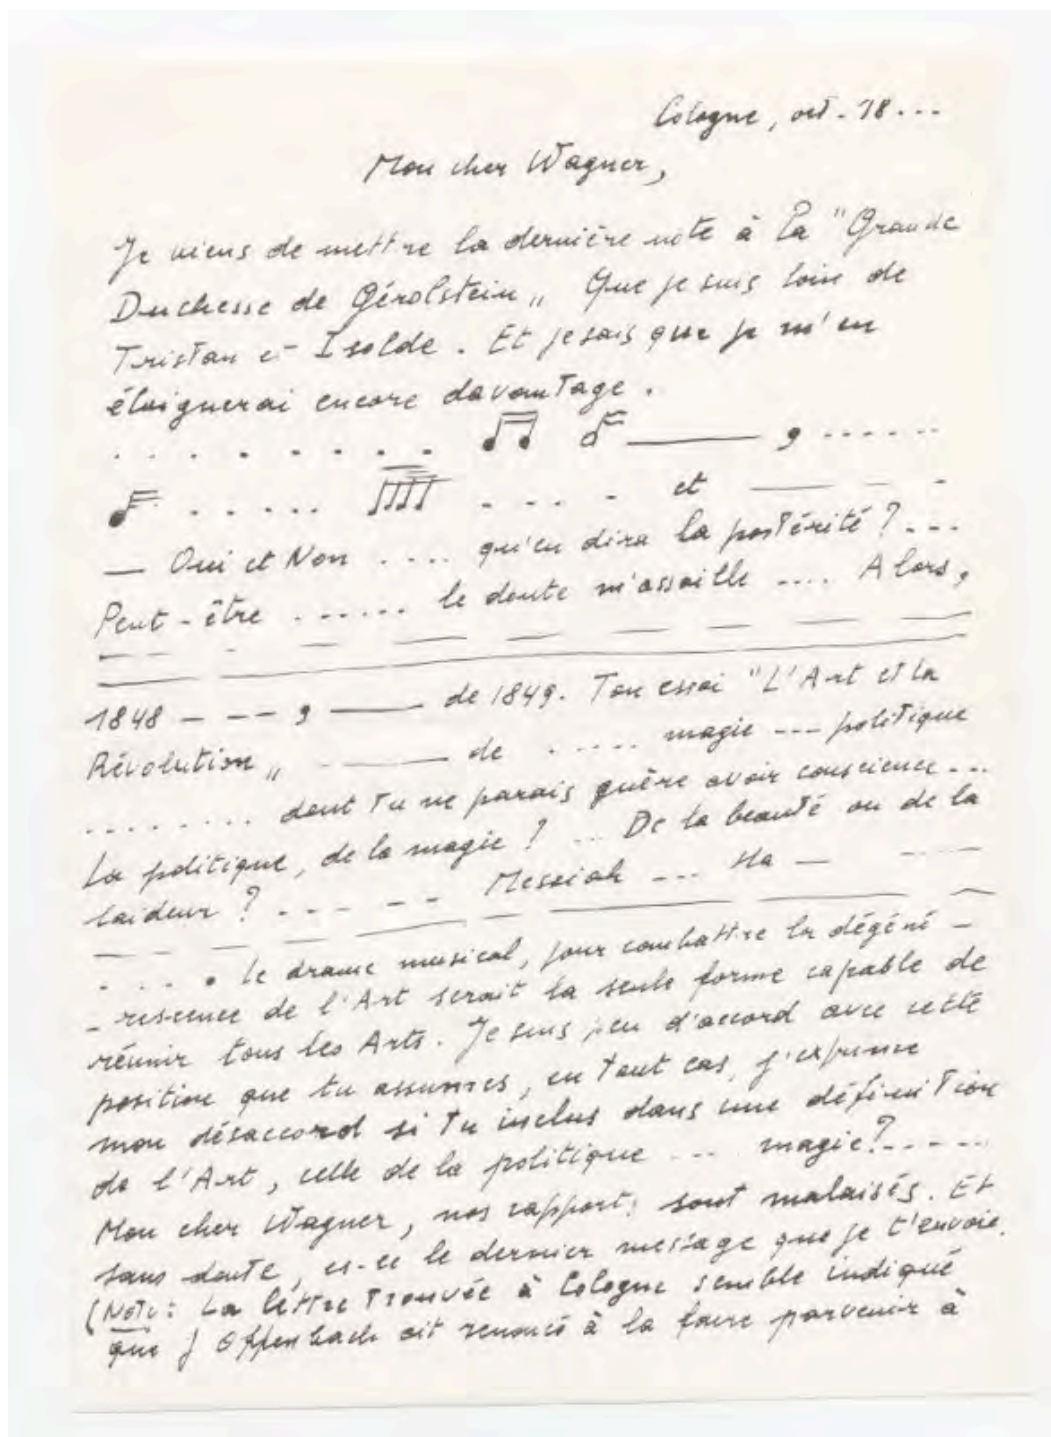 Cologne, oct. 18...
Mon cher Wagner,
Je viens de mettre la dernière note à La "Grande
Duchesse de Gérolstein„ Que je suis loin de
Tristan et Isolde. Et je sais que je m'en
éloignerai encore davantage.
. . . . . . . . . ♫ ♬ ——— , ......
♬ ..... ♬ .... et ——— – –
— Oui et Non .... qu'en dira la postérité ? ...
Peut-être ...... le doute m'assaille .... Alors,
1848 – – – , ——— de 1849. Ton essai "L'Art et la
Révolution„ ——— de ..... magie --- politique
........ dont Tu ne parais guère avoir conscience...
La politique, de la magie ? ... De la beauté ou de la
laideur ? - - - - - Messiah --- Ha — ....
. . . . Le drame musical, pour combattre la dégéné-
-rescence de l'Art serait la seule forme capable de
réunir tous les Arts. Je suis peu d'accord avec cette
position que tu assumes, en tout cas, j'exprime
mon désaccord si Tu inclus dans une définition
de l'Art, celle de la politique ... magie ? - - - - -
Mon cher Wagner, nos rapports sont malaisés. Et
sans doute, es-ce le dernier message que je t'envoie.
(Note : La lettre Trouvée à Cologne semble indiqué
que J Offenbach ait renoncé à la faire parvenir à